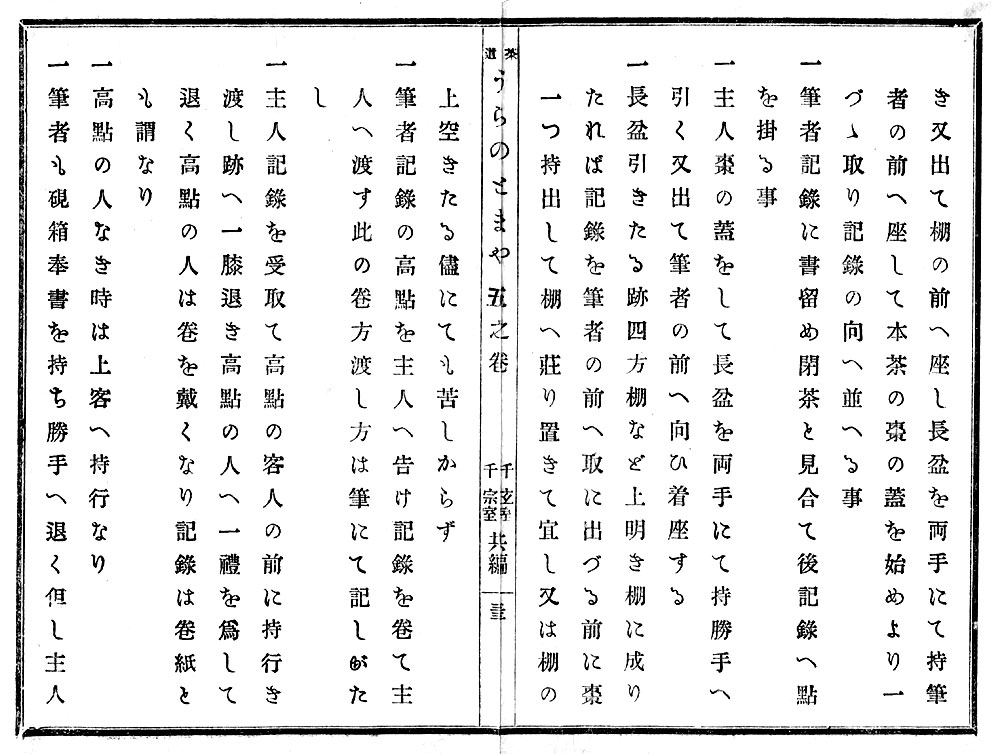 き又出て棚の前へ座し長盆を両手にて持筆
者の前へ座して本茶の棗の蓋を始めより一
づゝ取り記錄の向へ並へる事
一筆者記錄に書留め閉茶と見合て後記錄へ點
を掛る事
一主人棗の蓋をして長盆を両手にて持勝手へ
引く又出て筆者の前へ向ひ着座する
一長盆引きたる跡四方棚など上明き棚に成り
たれば記錄を筆者の前へ取に出づる前に棗
一つ持出して棚へ莊り置きて宜し又は棚の
茶道
うらのとまや五之卷
千玄室
千宗室
共編
上空きたる儘にても苦しからず
一筆者記錄の高點を主人へ告け記錄を卷て主
人へ渡す此の卷方渡し方は筆にて記しがた
し
一主人記錄を受取て高點の客人の前に持行き
渡し跡へ一膝退き高點の人へ一禮を爲して
退く高點の人は卷を戴くなり記錄は卷紙と
も謂なり
一高點の人なき時は上客へ持行なり
一筆者も硯箱奉書を持ち勝手へ退く但し主人